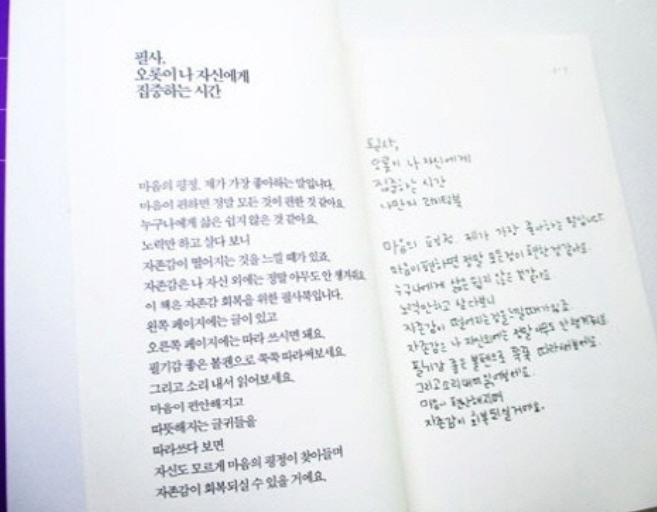 필사,
오롯이 나 자신에게
집중하는 시간
마음의 평정. 제가 가장 좋아하는 말입니다.
마음이 편하면 정말 모든 것이 편한 것 같아요.
누구나에게 삶은 쉽지 않은 것 같아요.
노력만 하고 살다 보니
자존감이 떨어지는 것을 느낄 때가 있죠.
자존감은 나 자신 외에는 정말 아무도 안 챙겨줘요.
이 책은 자존감 회복을 위한 필사북입니다.
왼쪽 페이지에는 글이 있고
오른쪽 페이지에는 따라 쓰시면 돼요.
필기감 좋은 볼펜으로 쭉쭉 따라써보세요.
그리고 소리 내서 읽어보세요.
마음이 편안해지고
따뜻해지는 글귀들을
따라쓰다 보면
자신도 모르게 마음의 평정이 찾아들며
자존감이 회복되실 수 있을 거예요.
필사,
오롯이 나 자신에게
집중하는 시간
나만의 라이팅북
마음의 평정. 제가 가장 좋아하는 말입니다
마음이 편하면 정말 모든것이 편한것같아요.
누구나에게 삶은 쉽지 않은 것같아요
노력만하고 살다보니
자존감이 떨어지는것을 느낄때가있죠
자존감은 나 자신외에는 정말 아무도 안챙겨줘요.
필기감 좋은 볼펜으로 쭉쭉 따라써보세요.
그리고소리내서 읽어보세요.
마음이 편안해지며
자존감이 회복되실거예요.